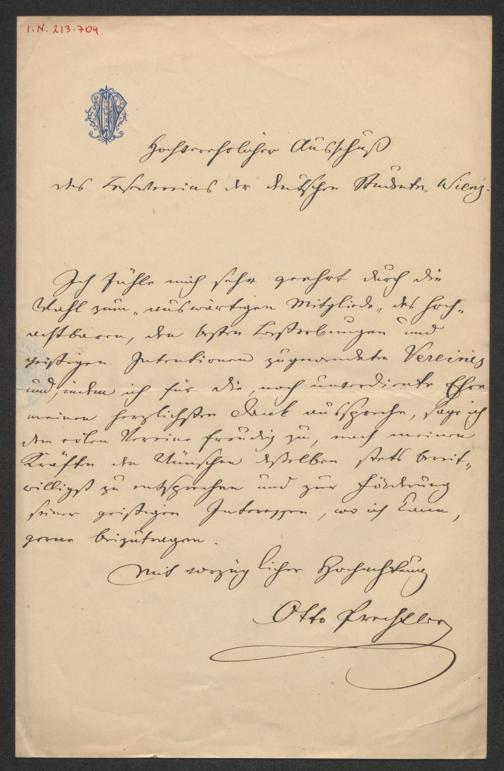 I.N. 213.704
Hochverehrlicher Ausschuß
des Lesevereins der deutschen Studenten Wiens.
Ich fühle mich sehr geehrt durch die
Wahl zum "auswärtigen Mitgliede" des hoch-
achtbaren, den besten Bestrebungen und
geistigen Intentionen zugewendeten Vereines
und, indem ich für die, noch unverdiente Ehre
meinen herzlichsten Dank ausspreche, sage ich
dem edlen Vereine freudig zu, nach meinen
Kräften den Wünschen desselben stets bereit-
willigst zu entsprechen und zur Förderung
seiner geistigen Interessen, wo ich kann,
gerne beizutragen.
Mit vorzüglicher Hochachtung
Otto Prechtler